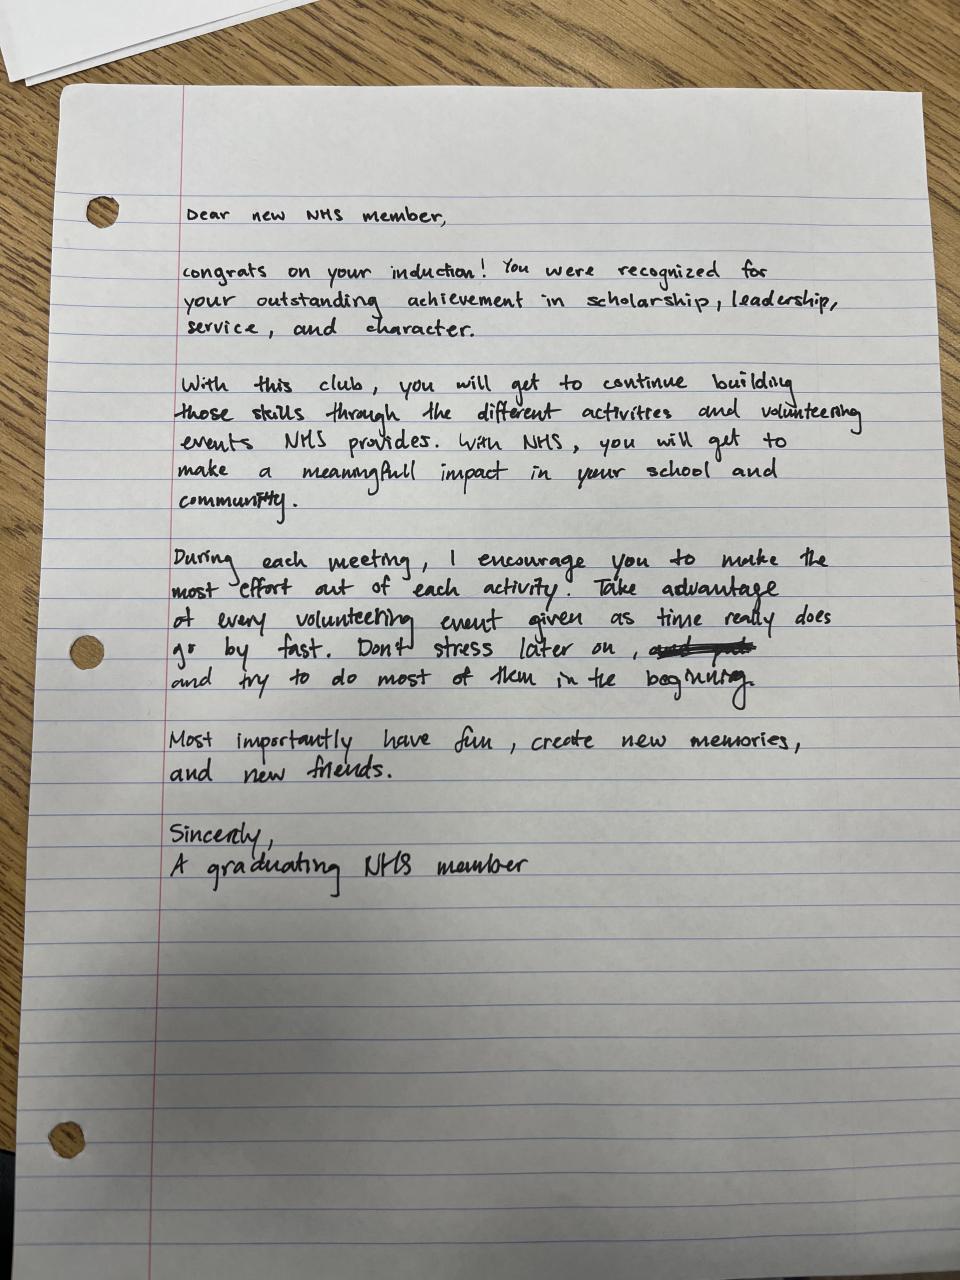 Dear new NHS member,
congrats on your induction! You were recognized for
your outstanding achievement in scholarship, leadership,
service, and character.
With this club, you will get to continue building
those skills through the different activities and volunteering
events NHS provides. With NHS, you will get to
make a meaningfull impact in your school and
community.
During each meeting, I encourage you to make the
most effort out of each activity. Take advantage
of every volunteering event given as time really does
go by fast. Don't stress later on,
and try to do most of them in the beginning.
Most importantly have fun, create new memories,
and new friends.
Sincerely,
A graduating NHS member